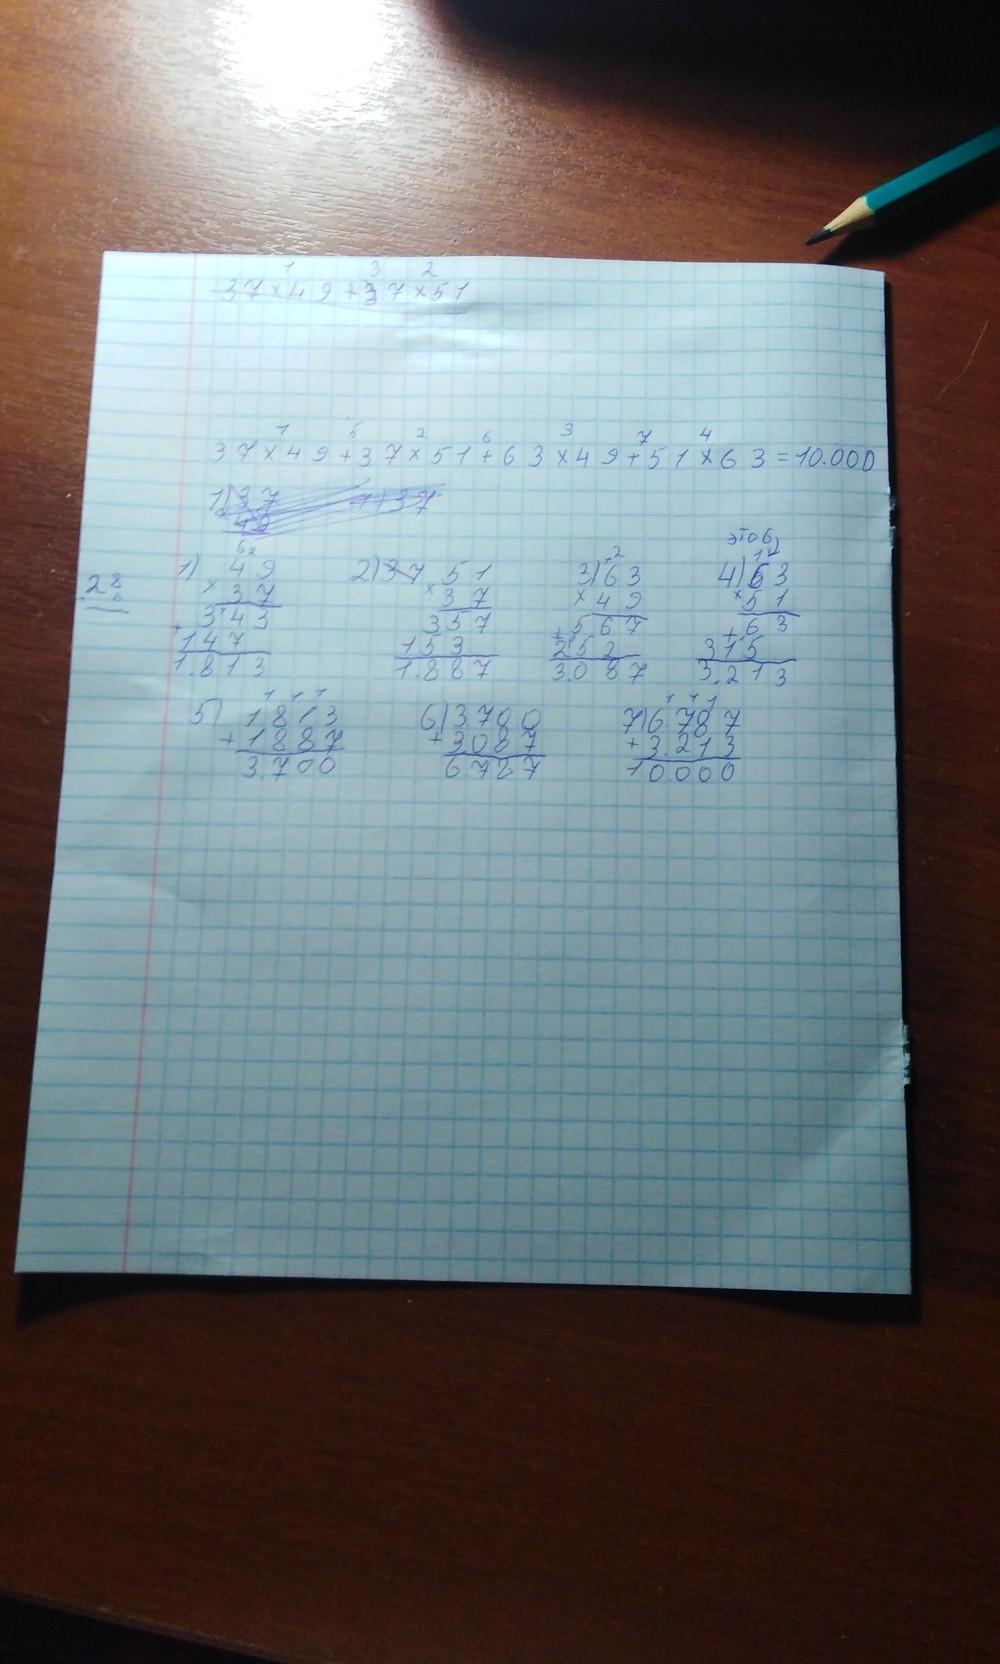 1 3 2
37×49+37×51
1 5 2 6 3 7 4
37×49+37×51+63×49+51×63=10.000
1) 37 1) 37
× 49
это 6
6 2 2 1
1) 49 2) 37 51 3) 63 4) 63
× 37 × 37 × 49 × 51
343 357 567 63
+ 147 153 + 252 + 315
1.813 1.887 3.087 3.213
1 1 1 1 1 1
5) 1813 6) 3.700 7) 6.787
+ 1887 + 3.087 + 3.213
3.700 6787 10000